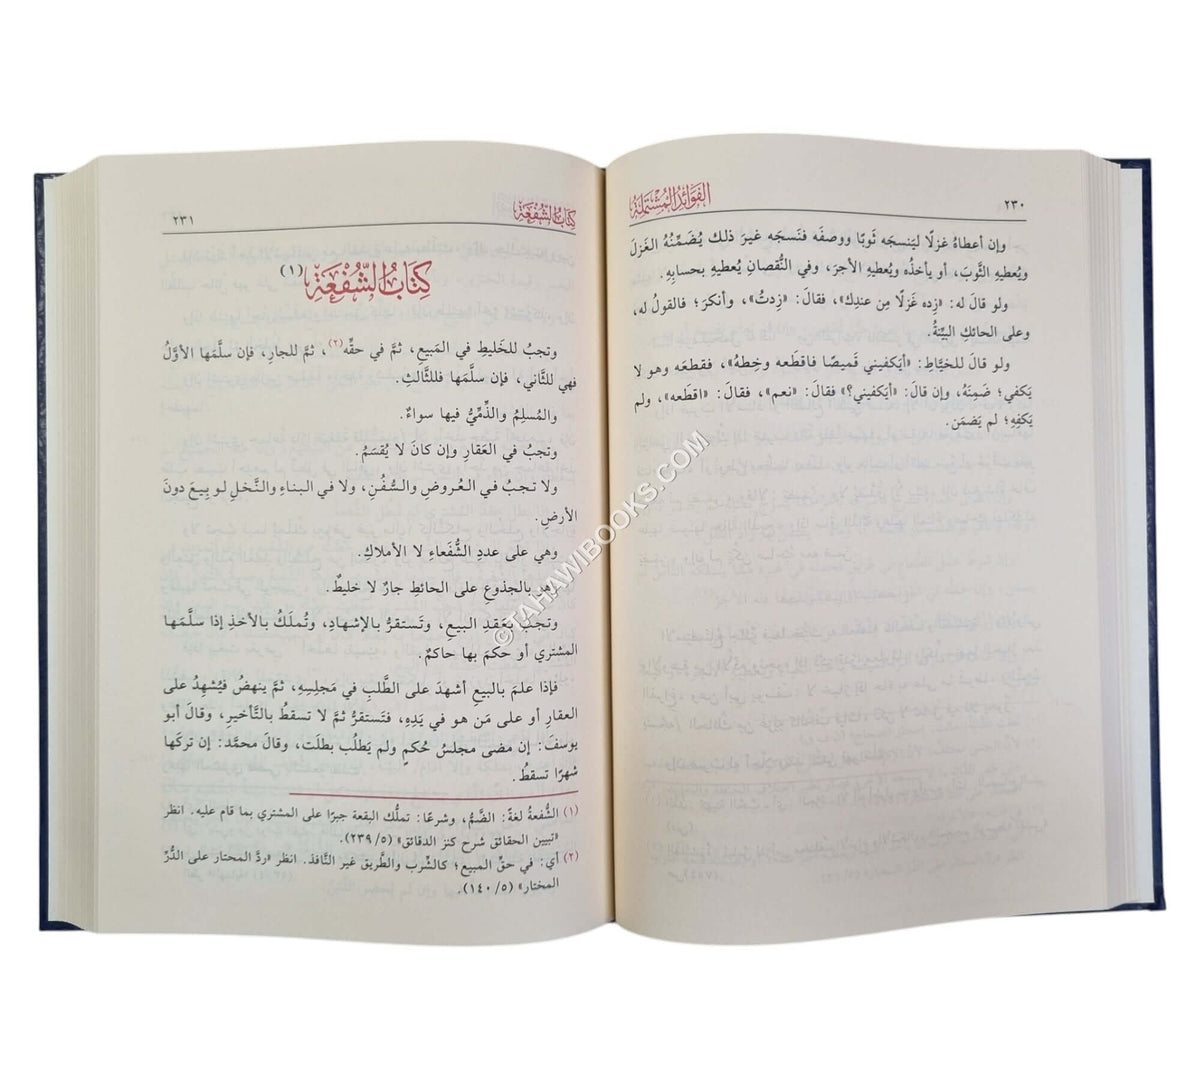 ٢٣٠
الفَوَائِدُ المُشْتَمِلَةُ
وإن أعطاهُ غزلًا ليَنسجَه ثَوبًا ووصفَه فنَسجَه غيرَ ذلك يُضَمِّنُهُ الغَزلَ
ويُعطيهِ الثَّوبَ، أو يأخذُه ويُعطيهِ الأجرَ، وفي النُّقصانِ يُعطيهِ بحسابِهِ.
ولو قالَ له: «زِده غَزلًا مِن عندِك»، فقالَ: «زِدتُ»، وأنكرَ؛ فالقولُ له،
وعلى الحائكِ البيِّنةُ.
ولو قالَ للخيَّاطِ: «أيَكفيني قَميصًا فاقطَعه وخِطهُ»، فقطعَه وهو لا
يَكفي؛ ضَمِنَهُ، وإن قالَ: «أيَكفيني؟» فقالَ: «نعم»، فقالَ: «اقطَعه»، ولم
يَكفِهِ؛ لم يَضمَن.
كِتَابُ الشُّفْعَةِ
٢٣١
كِتَابُ الشُّفْعَةِ (١)
وتجبُ للخَليطِ في المَبيعِ، ثمَّ في حقِّه (٢)، ثمَّ للجارِ، فإن سلَّمَها الأوَّلُ
فهي للثَّاني، فإن سلَّمَها فللثَّالثِ.
والمُسلِمُ والذِّمِّيُّ فيها سواءٌ.
وتجبُ في العَقارِ وإن كانَ لا يُقسَمُ.
ولا تجبُ في العُروضِ والسُّفُنِ، ولا في البناءِ والنَّخلِ لو بِيعَ دونَ
الأرضِ.
وهي على عددِ الشُّفَعاءِ لا الأملاكِ.
وهو بالجذوعِ على الحائطِ جارٌ لا خليطٌ.
وتجبُ بعَقدِ البيعِ، وتَستقرُّ بالإشهادِ، وتُملَكُ بالأخذِ إذا سلَّمَها
المشتري أو حكمَ بها حاكمٌ.
فإذا علمَ بالبيعِ أشهدَ على الطَّلبِ في مَجلِسِهِ، ثمَّ ينهضُ فيُشهِدُ على
العقارِ أو على مَن هو في يَدِهِ، فتَستقرُّ ثمَّ لا تسقطُ بالتَّأخيرِ، وقالَ أبو
يوسفَ: إن مضى مجلسُ حُكمٍ ولم يَطلُب بطلَت، وقالَ محمَّد: إن تركَها
شهرًا تسقطُ.
(١) الشُّفعةُ لغةً: الضَّمُّ، وشرعًا: تملُّك البقعة جبرًا على المشتري بما قام عليه. انظر
«تبيين الحقائق شرح كنز الدقائق» (٥/ ٢٣٩).
(٢) أي: في حقِّ المبيع؛ كالشِّرب والطَّريق غير النَّافذ. انظر «ردَّ المحتار على الدُّرِّ
المختار» (٥/ ١٤٠).
©TAHAWIBOOKS.COM